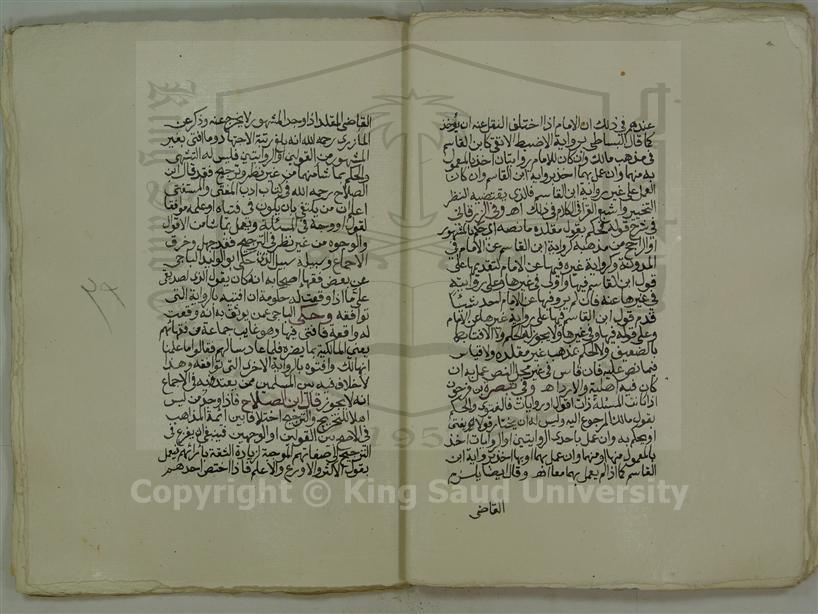 عندهم في ذلك ان الامام اذا اختلف النقل عنه ان يؤخذ
كما قال البساطي برواية الاضبط الاتقى كابن القاسم
في مذهب مالك وان كان للامام روايتان اخذ بالمعمول
به منهما وان عمل بهما اخذ برواية ابن القاسم وان كان
العمل على غير رواية ابن القاسم فالذي يقتضيه النظر
التخيير الكلام في ذلك اهـ وفي الزرقاني
في شرح قوله فحكم بقول مقلده ما نصه اي بالمشهور
او الراجح من مذهبه كرواية ابن القاسم عن الامام في
المدونة ورواية غيره فيها عن الامام لتقديمها على
قول ابن القاسم فيها واولى في غيرها وعلى روايته
في غيرها عنه فان لم يرو فيها عن الامام احد شيئا
قدم قول ابن القاسم فيها على رواية غيره في غيرها عن الامام
وعلى قوله فيها وفي غيرها ولا يجوز للحاكم ولا الافتا
بالضعيف ولا الحكم بمذهب غير مقلده ولا قياس
فيما نص عليه فان قاس في غير محل النص عمل به ان
كان فيه اهلية والا رد اهـ وفي تبصرة بن فرحون
اذا كانت المسئلة ذات اقوال وروايات فالفتوى والحكم
بقول مالك المرجوع اليه وليس له ان يختار قولا يفتي
او يحكم به وان عمل باحدى الروايتين او الروايات اخذ
بالمعمول منها ومنهما وان عمل بهما او بها اخذ برواية ابن
القاسم كما اذا لم يعمل بهما معا اهـ وقال ايضا يلزم
القاضي
القاضي المقلد اذا وجد المشهور لا يخرج عنه وذكر عن
المازري رحمه الله انه بلغ رتبة الاجتهاد وما افتى بغير
المشهور من القولين او الروايتين فليس له التشهي
والحكم بما شا منهما من غير نظر وترجيح فقد قال ابن
الصلاح رحمه الله في كتاب ادب المفتي والمستفتي
اعلم ان من يكتفي بان يكون في فتياه او علمه موفقا
لقول او وجه في المسئلة ويعمل بما شا من الاقوال
والوجوه من غير نظر في الترجيح فقد جهل وخرق
الاجماع وسبيله سبيل الذي حكى ابو الوليد الباجي
عن بعض فقهاء اصحابه انه كان يقول الذي لصديقي
علي اذا وقعت له حكومة ان افتيه بالرواية التي
توافقه وحكى الباجي عمن يوثق به انه وقعت
له واقعة فافتى فيها وهو غايب جماعة من فقهائهم
يعني المالكية بما يضره فلما عاد سالهم فقالوا ما علمنا
انها لك وافتوه بالرواية الاخرى التي توافقه وهذا
لا خلاف فيه بين المسلمين ممن يعتد به في الاجماع
انه لا يجوز قال ابن الصلاح فاذا وجد من ليس
اهلا للتخريج والترجيح اختلافا بين ائمة المذاهب
في الاصح من القولين او الوجهين فينبغي ان يفزع في
الترجيح الى صفاتهم الموجبة لزيادة الثقة بآرائهم فيعمل
بقول الاكثر والاورع والاعلم فاذا اختص احدهم
Copyright © King Saud University
1957